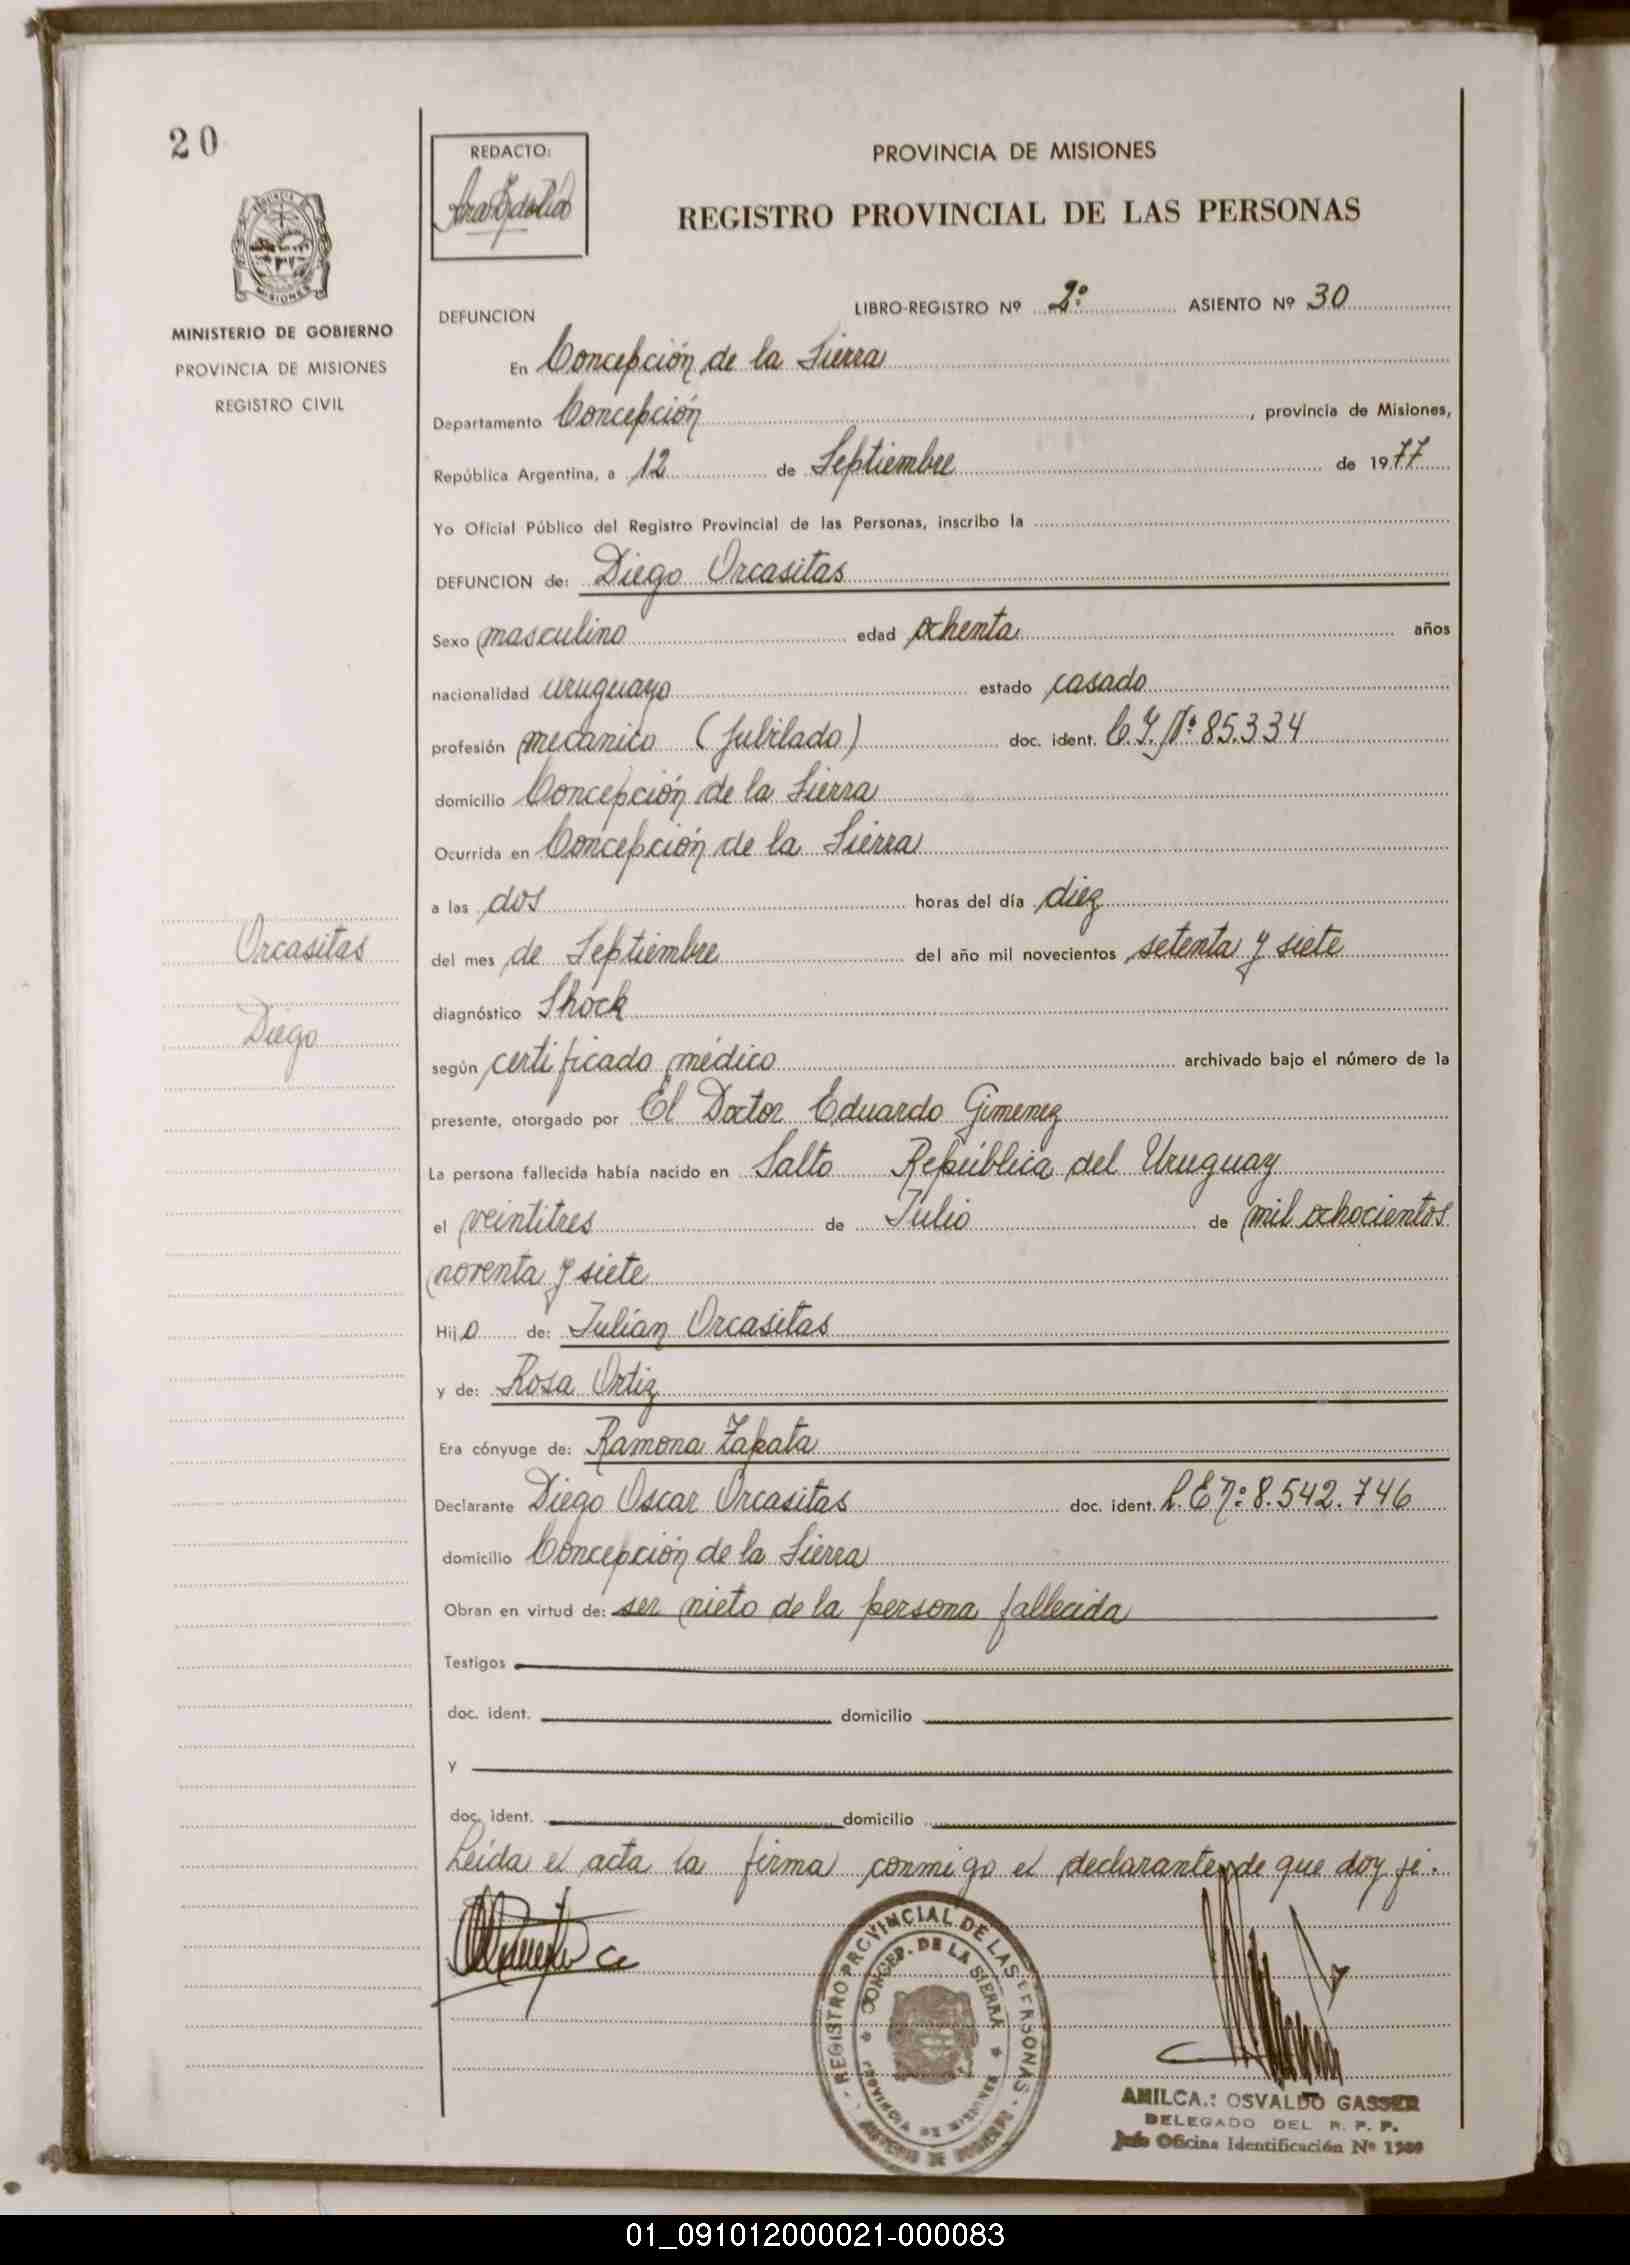 20
REDACTO:
PROVINCIA DE MISIONES
REGISTRO PROVINCIAL DE LAS PERSONAS
PROVINCIA
MISIONES
MINISTERIO DE GOBIERNO
PROVINCIA DE MISIONES
REGISTRO CIVIL
LIBRO-REGISTRO Nº 2º ASIENTO Nº 30
DEFUNCION
En Concepción de la Sierra
Departamento Concepción, provincia de Misiones,
República Argentina, a 12 de Septiembre de 1977
Yo Oficial Público del Registro Provincial de las Personas, inscribo la
DEFUNCION de: Diego Orcasitas
Sexo masculino edad ochenta años
nacionalidad uruguayo estado casado
profesión mecánico (Jubilado) doc. ident. C.I. Nº 85.334
domicilio Concepción de la Sierra
Ocurrida en Concepción de la Sierra
a las dos horas del día diez
Orcasitas
del mes de Septiembre del año mil novecientos setenta y siete
diagnóstico Shock
Diego
según certificado médico archivado bajo el número de la
presente, otorgado por El Doctor Eduardo Gimenez
La persona fallecida había nacido en Salto República del Uruguay
el veintitres de Julio de mil ochocientos
noventa y siete
Hijo de: Julián Orcasitas
y de: Rosa Ortiz
Era cónyuge de: Ramona Zapata
Declarante Diego Oscar Orcasitas doc. ident. L.E Nº 8.542.746
domicilio Concepción de la Sierra
Obran en virtud de: ser nieto de la persona fallecida
Testigos
doc. ident. domicilio
y
doc. ident. domicilio
Leída el acta la firma conmigo el declarante, de que doy fé.
REGISTRO PROVINCIAL DE LAS PERSONAS
CONCEP. DE LA SIERRA
PROVINCIA DE MISIONES
AMILCA.: OSVALDO GASSER
DELEGADO DEL R. P. P.
Jefe Oficina Identificación Nº
01_091012000021-000083